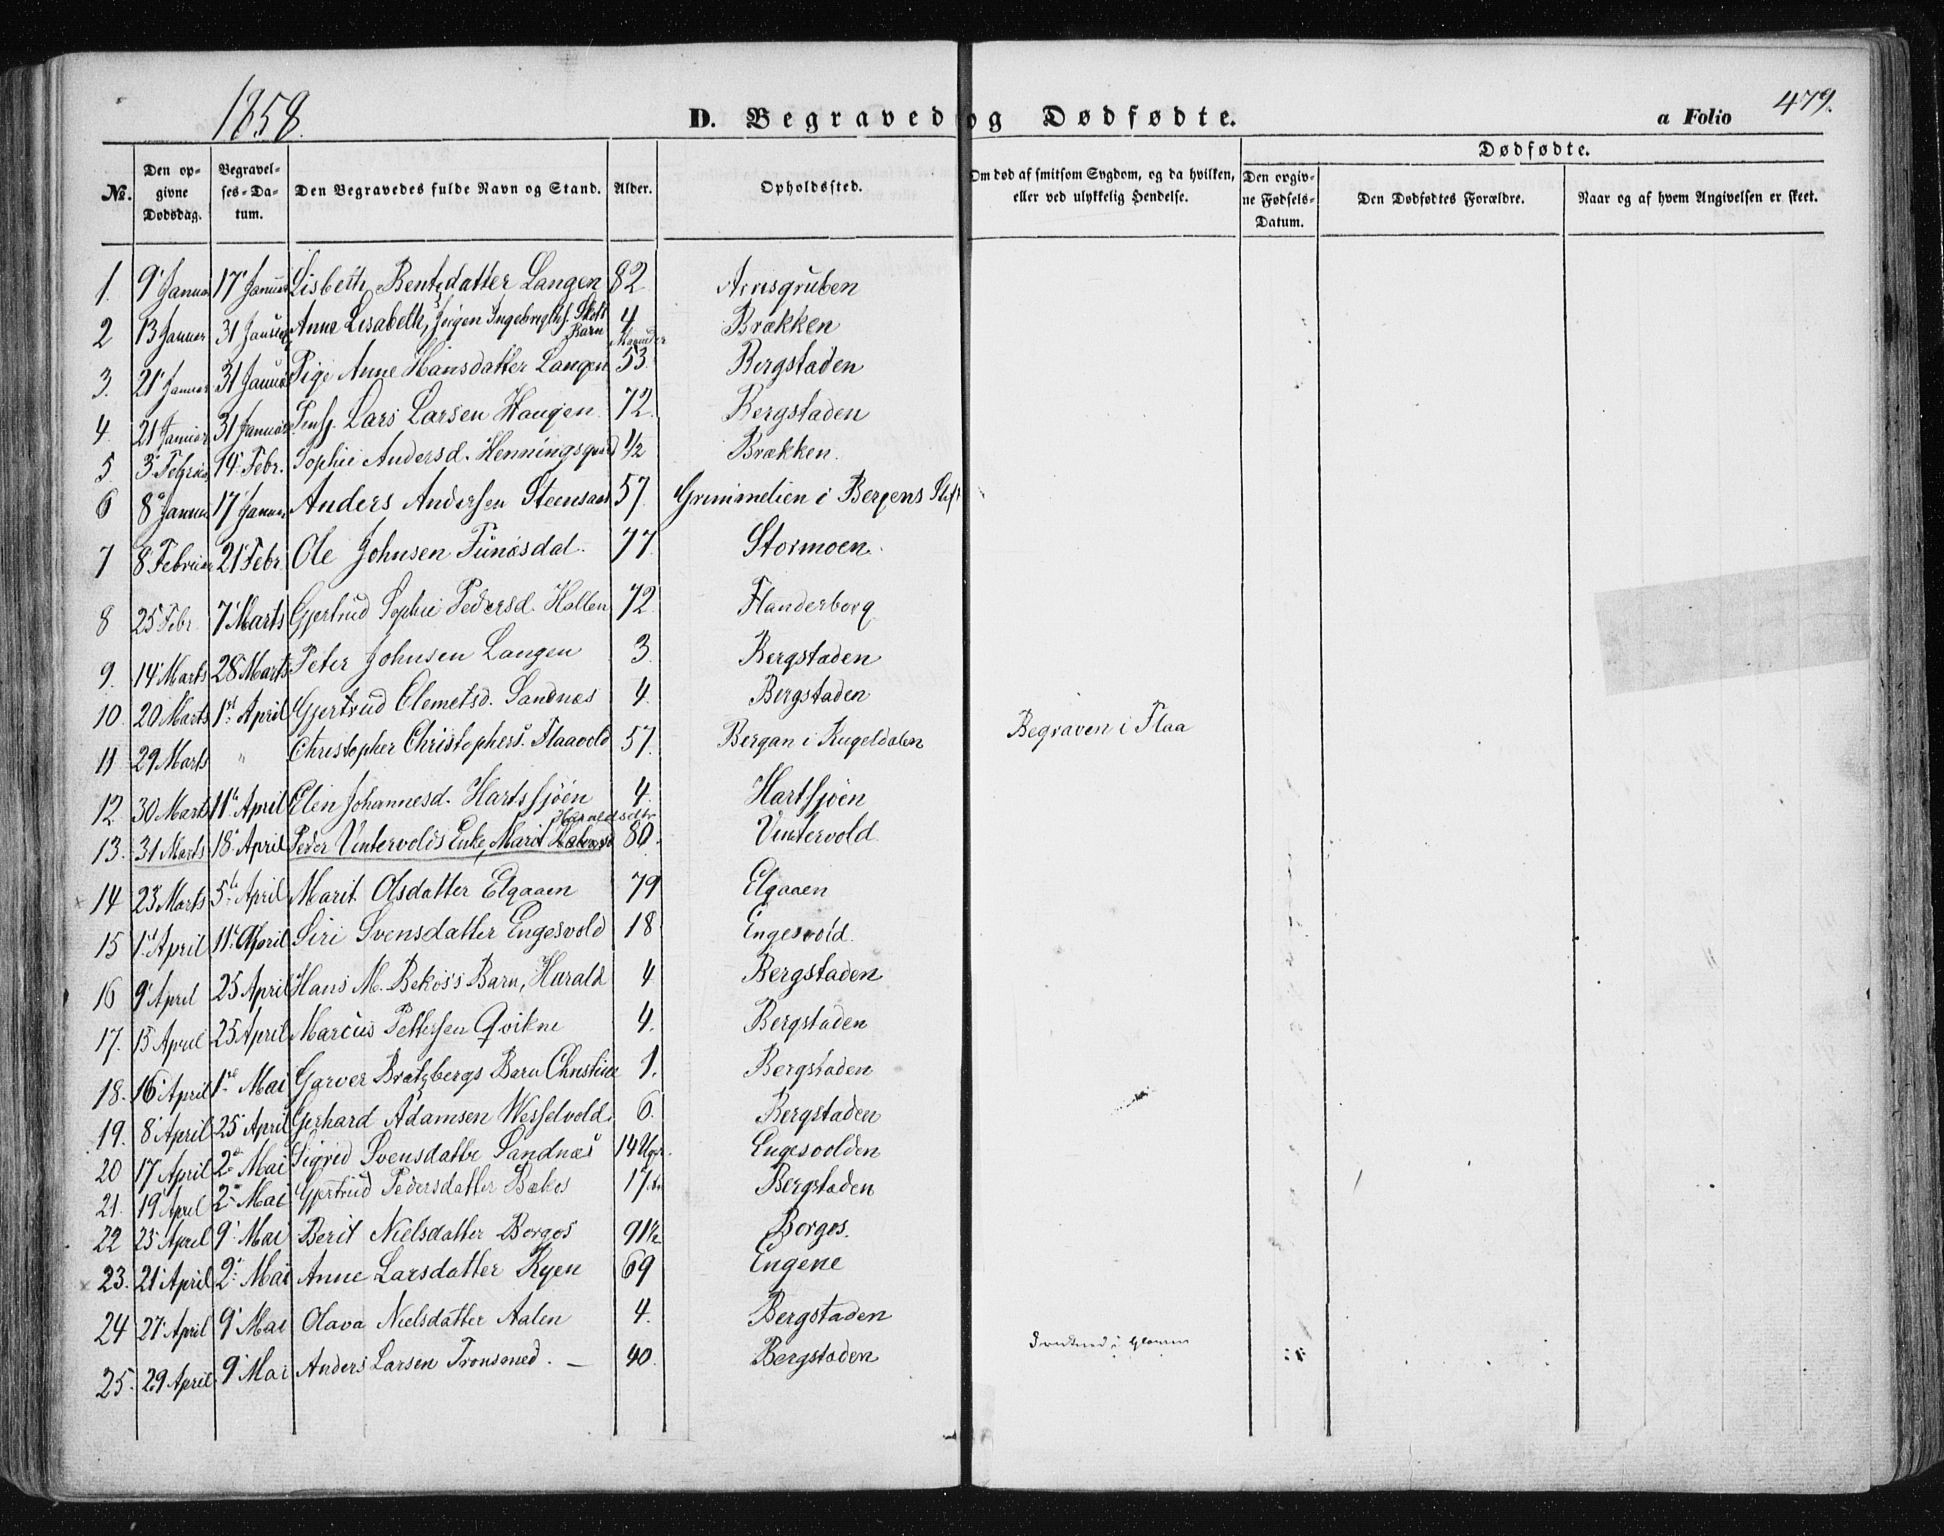 1858.
D. Begravede og Dødfødte.
a Folio 479.
No. Den opgivne Dødsdag. Begravelses-Datum. Den Begravedes fulde Navn og Stand. Alder. Opholdssted. Om død af smitsom Sygdom, og da hvilken, eller ved ulykkelig Hendelse. Dødfødte. Den opgivne Fødsels-Datum. Den Dødfødtes Forældre. Naar og af hvem Angivelsen er skeet.
1. 9 Januar 17 Januar Lisbeth Bentzdatter Langen 82 Arvsgruben
2 13 Januar 31 Januar Anne Lisabeth, Jørgen Ingebrigts. Barn 4 Maaneder Brækken
3. 21 Januar 31 Januar Pige Anne Hansdatter Langen 53. Bergstaden
4. 21 Januar 31 Januar Lars Larsen Haugen 72. Bergstaden
5 3 Februar 14 Febr. Sophie Andersd. Henningsgaard 1/2 Brækken.
6 8 Januar 17 Januar Anders Andersen Steensaas 57. Grimmelien i Bergens Stift
7 8 Februar 21 Febr. Ole Johnsen Funæsdal. 77. Stormoen.
8 25 Febr. 7 Marts Gjertrud Sophie Pedersd. Hollen 72 Flanderborg
9. 14 Marts 28 Marts Peter Johnsen Langen 3. Bergstaden
10. 20 Marts 1st April Gjertrud Elemetsd. Sandnæs 4. Bergstaden
11 29 Marts " Christopher Christophers. Flaavold 57. Bergan i Kugeldalen Begraven i Flaa
12 30 Marts 11 April Elen Johannesd. Hartssjøen 4. Hartsjøen
13. 31 Marts 18 April Peder Vintervolds Enke, Marit Haraldsdtr 80. Vintervold
14 23 Marts 5te April Marit Olsdatter Elgaaen 79 Elgaaen
15 1 April 11 April Siri Svensdatter Engesvold 18 Engesvold.
16 9 April 25 April Hans M. Bekos's Barn, Harald 4 Bergstaden
17. 15 April 25 April Marcus Pettersen Qvikne 4. Bergstaden
18. 16 April 1ste Mai Garver Bratzbergs Barn Christine 1. Bergstaden
19. 8 April 25 April Gerhard Adamsen Wesselvold. 6. Bergstaden
20 17 April 2 Mai Sigrid Svensdattr Sandnæs 14 Uger. Engesvolden
21. 19 April 2 Mai Gjertrud Pedersdatter Bækos 17 Bergstaden
22 25 April 9 Mai Berit Nielsdatter Borgos 91 1/2 Borgos.
23. 21 April 2 Mai Anne Larsdatter Ryen 69 Engene
24 27 April 9 Mai Olava Nielsdatter Aalen 4. Bergstaden
25. 29 April 9 Mai Anders Larsen Tronsoned. — 40. Bergstaden Druknet i Glomen